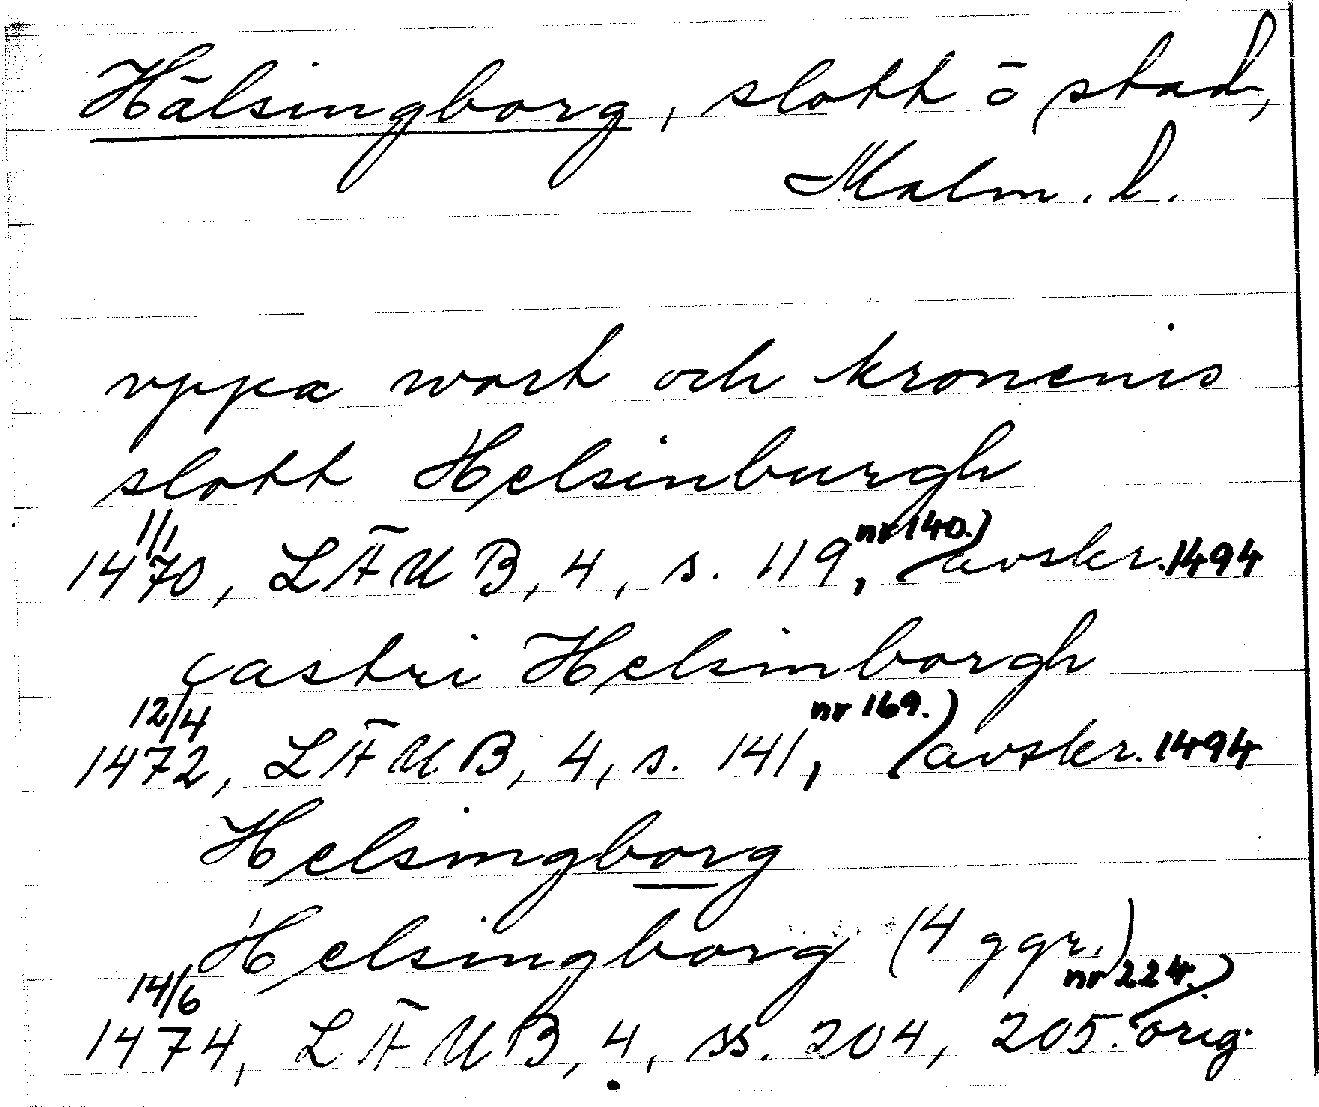 Hälsingborg, slott o stad,
Malm. l.
vppa wort och kronenis
slott Helsinburgh
1/1
1470, LÄUB, 4, s. 119, nr 140.) avskr. 1494
castri Helsinborgh
12/4
1472, LÄUB, 4, s. 141, nr 169.) avskr. 1494
Helsingborg
Helsingborg (4 ggr.)
14/6
1474, LÄUB, 4, ss. 204, 205. nr 224.) orig.